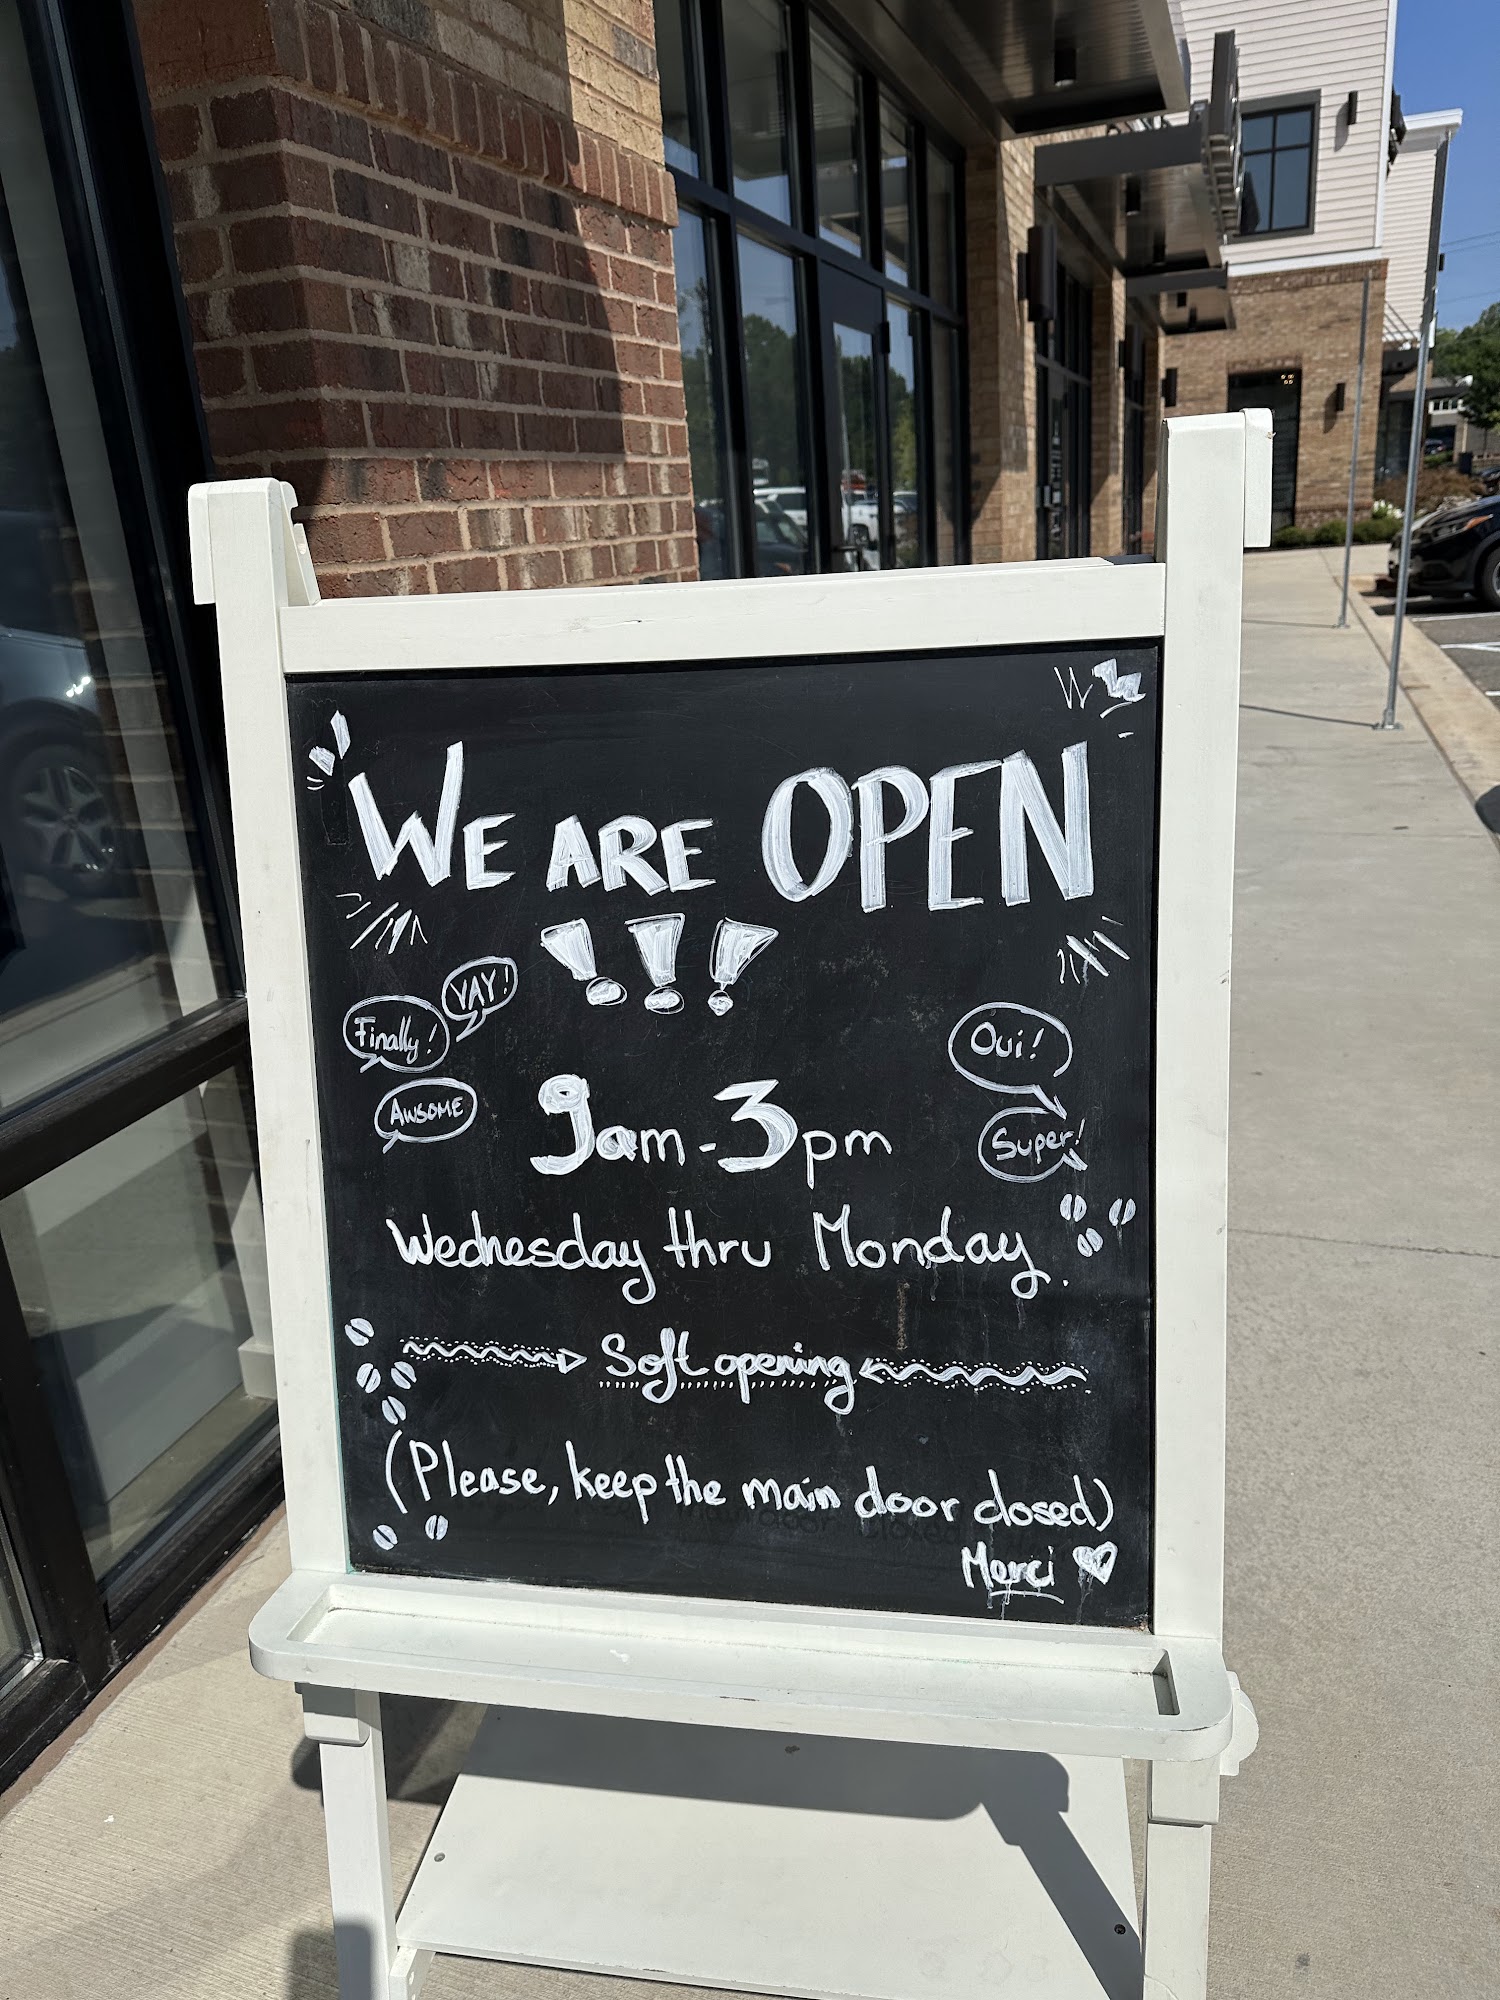 WE ARE OPEN
!!!
YAY!
Finally!
AWSOME
Oui!
Super!
9am - 3pm
Wednesday thru Monday.
Soft opening
(Please, keep the main door closed)
Merci